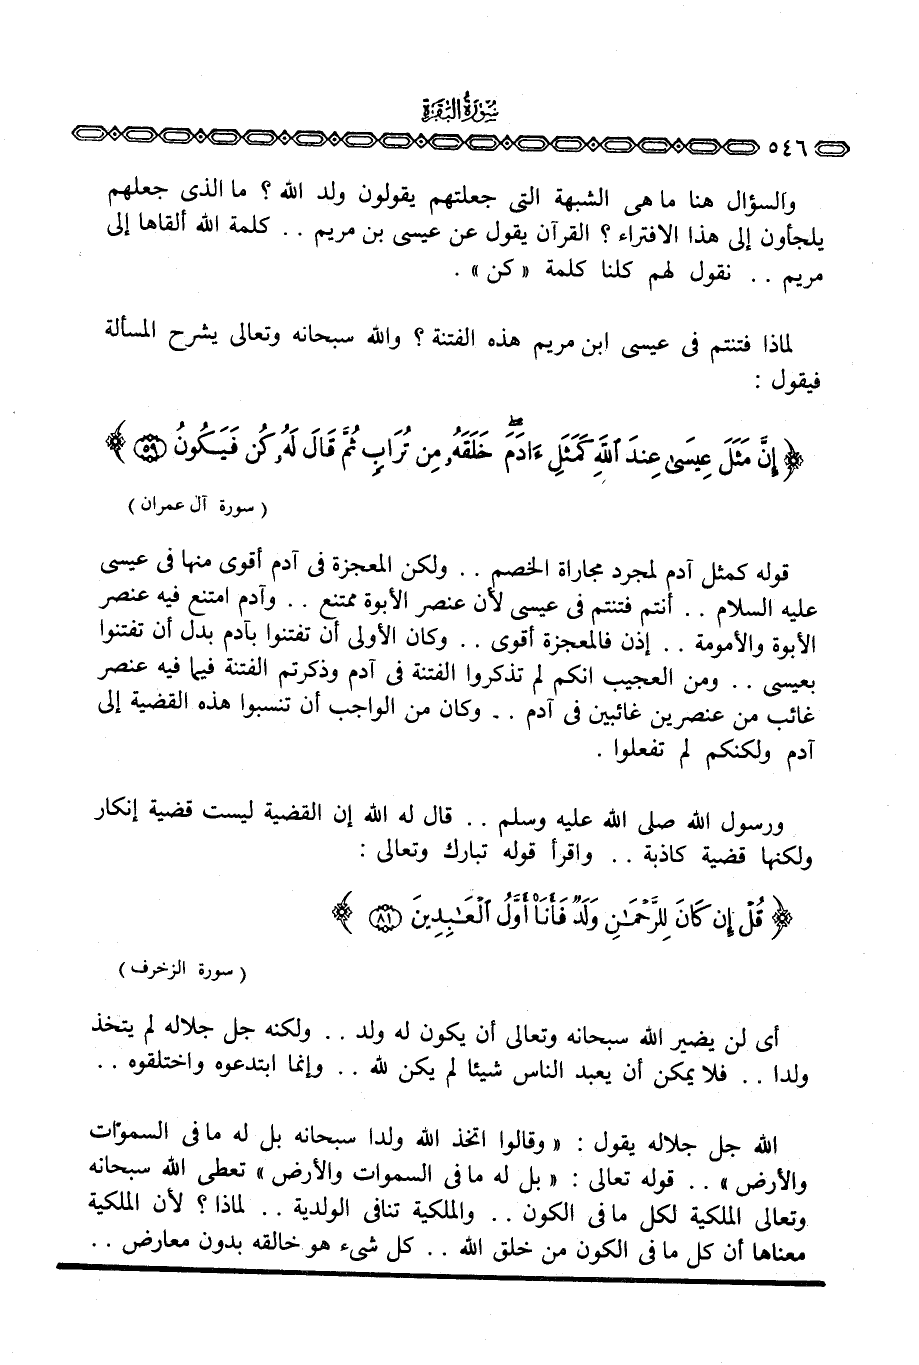 سورة البقرة
٥٤٦
والسؤال هنا ما هى الشبهة التى جعلتهم يقولون ولد الله ؟ ما الذى جعلهم
يلجأون إلى هذا الافتراء ؟ القرآن يقول عن عيسى بن مريم .. كلمة الله ألقاها إلى
مريم .. نقول لهم كلنا كلمة « كن » .
لماذا فتنتم فى عيسى ابن مريم هذه الفتنة ؟ والله سبحانه وتعالى يشرح المسألة
فيقول :
﴿ إِنَّ مَثَلَ عِيسَىٰ عِندَ ٱللَّهِ كَمَثَلِ ءَادَمَ ۖ خَلَقَهُۥ مِن تُرَابٍ ثُمَّ قَالَ لَهُۥ كُن فَيَكُونُ ٥٩ ﴾
( سورة آل عمران )
قوله كمثل آدم لمجرد مجاراة الخصم .. ولكن المعجزة فى آدم أقوى منها فى عيسى
عليه السلام .. أنتم فتنتم فى عيسى لأن عنصر الأبوة ممتنع .. وآدم امتنع فيه عنصر
الأبوة والأمومة .. إذن فالمعجزة أقوى .. وكان الأولى أن تفتنوا بآدم بدل أن تفتنوا
بعيسى .. ومن العجيب انكم لم تذكروا الفتنة فى آدم وذكرتم الفتنة فيما فيه عنصر
غائب من عنصرين غائبين فى آدم .. وكان من الواجب أن تنسبوا هذه القضية إلى
آدم ولكنكم لم تفعلوا .
ورسول الله صلى الله عليه وسلم .. قال له الله إن القضية ليست قضية إنكار
ولكنها قضية كاذبة .. واقرأ قوله تبارك وتعالى :
﴿ قُلْ إِن كَانَ لِلرَّحْمَٰنِ وَلَدٌ فَأَنَا۠ أَوَّلُ ٱلْعَٰبِدِينَ ٨١ ﴾
( سورة الزخرف )
أى لن يضير الله سبحانه وتعالى أن يكون له ولد .. ولكنه جل جلاله لم يتخذ
ولدا .. فلا يمكن أن يعبد الناس شيئا لم يكن لله .. وإنما ابتدعوه واختلقوه ..
الله جل جلاله يقول : « وقالوا اتخذ الله ولدا سبحانه بل له ما فى السموات
والأرض » .. قوله تعالى : « بل له ما فى السموات والأرض » تعطى الله سبحانه
وتعالى الملكية لكل ما فى الكون .. والملكية تنافى الولدية .. لماذا ؟ لأن الملكية
معناها أن كل ما فى الكون من خلق الله .. كل شىء هو خالقه بدون معارض ..